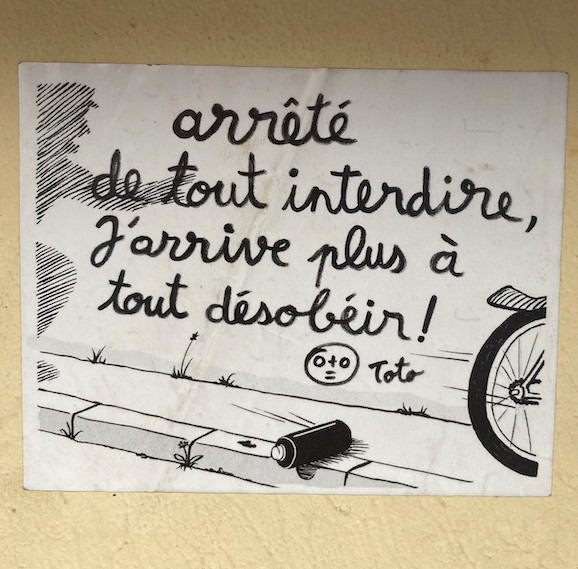 arrêté
de tout interdire,
J'arrive plus à
tout désobéir!
0+0
=
Toto